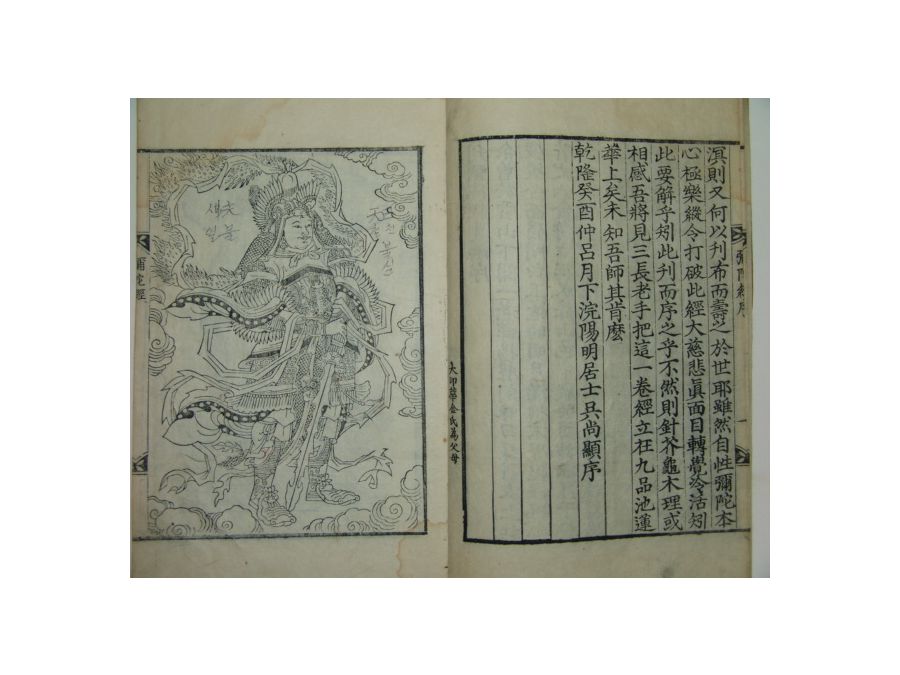 溟則又何以刋布而壽之於世耶雖然自性彌陀本
心極樂縱令打破此經大慈悲眞面目轉覺冷活矧
此要解乎矧此刋而序之乎不然則針芥龜木理或
相感吾將見三長老手把這一卷經立在九品池蓮
華上矣未知吾師其肯麽
乾隆癸酉仲呂月下浣陽明居士吳尚顯序
彌陀經序
一
大印華金氏為父母
彌陀經